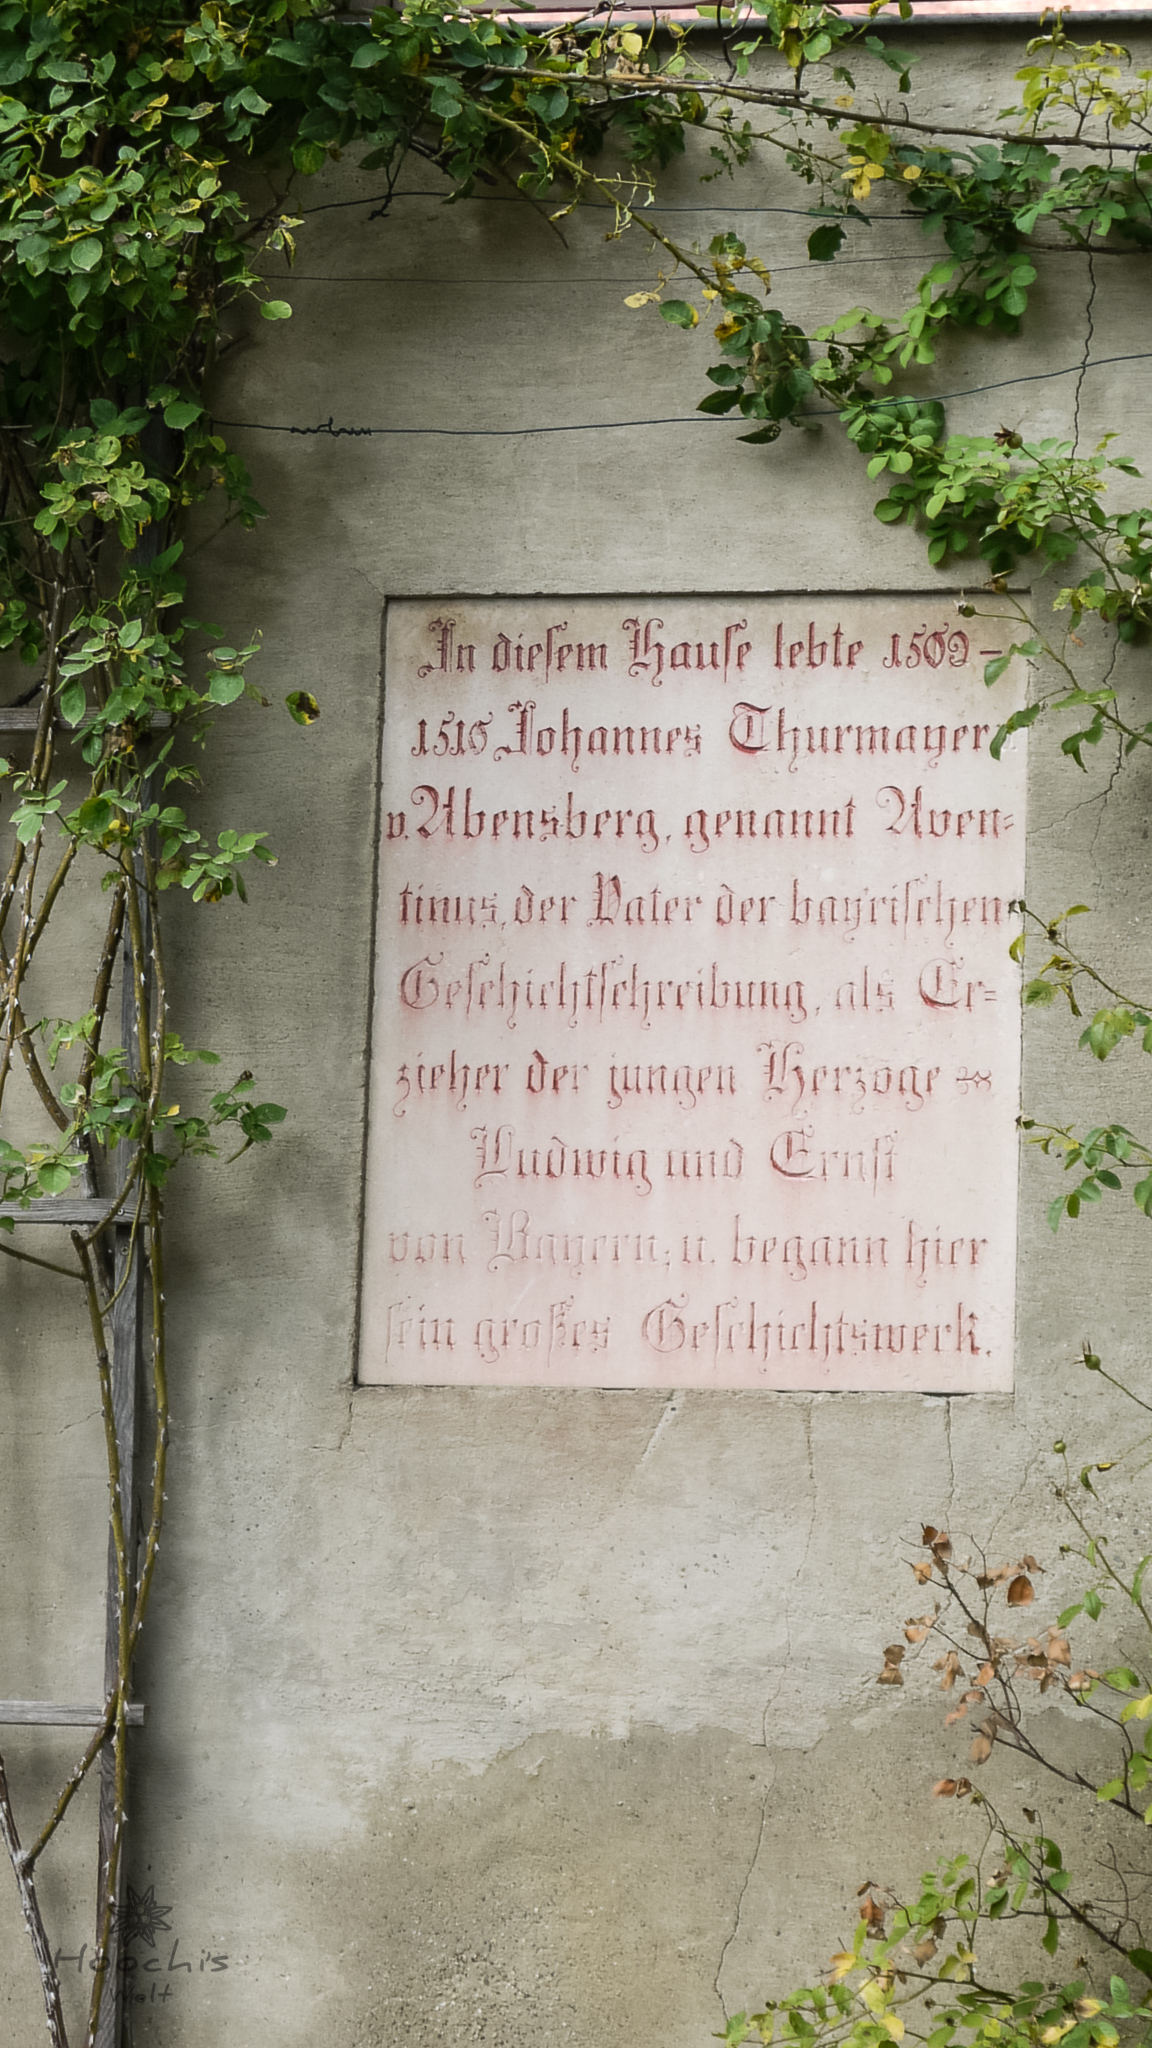 In diesem Hause lebte 1509–
1515 Johannes Thurmayer
v. Abensberg, genannt Aven=
tinus, der Vater der bayrischen
Geschichtschreibung, als Er=
zieher der jungen Herzoge
Ludwig und Ernst
von Bayern; u. begann hier
sein großes Geschichtswerk.
Hoochi's
Welt